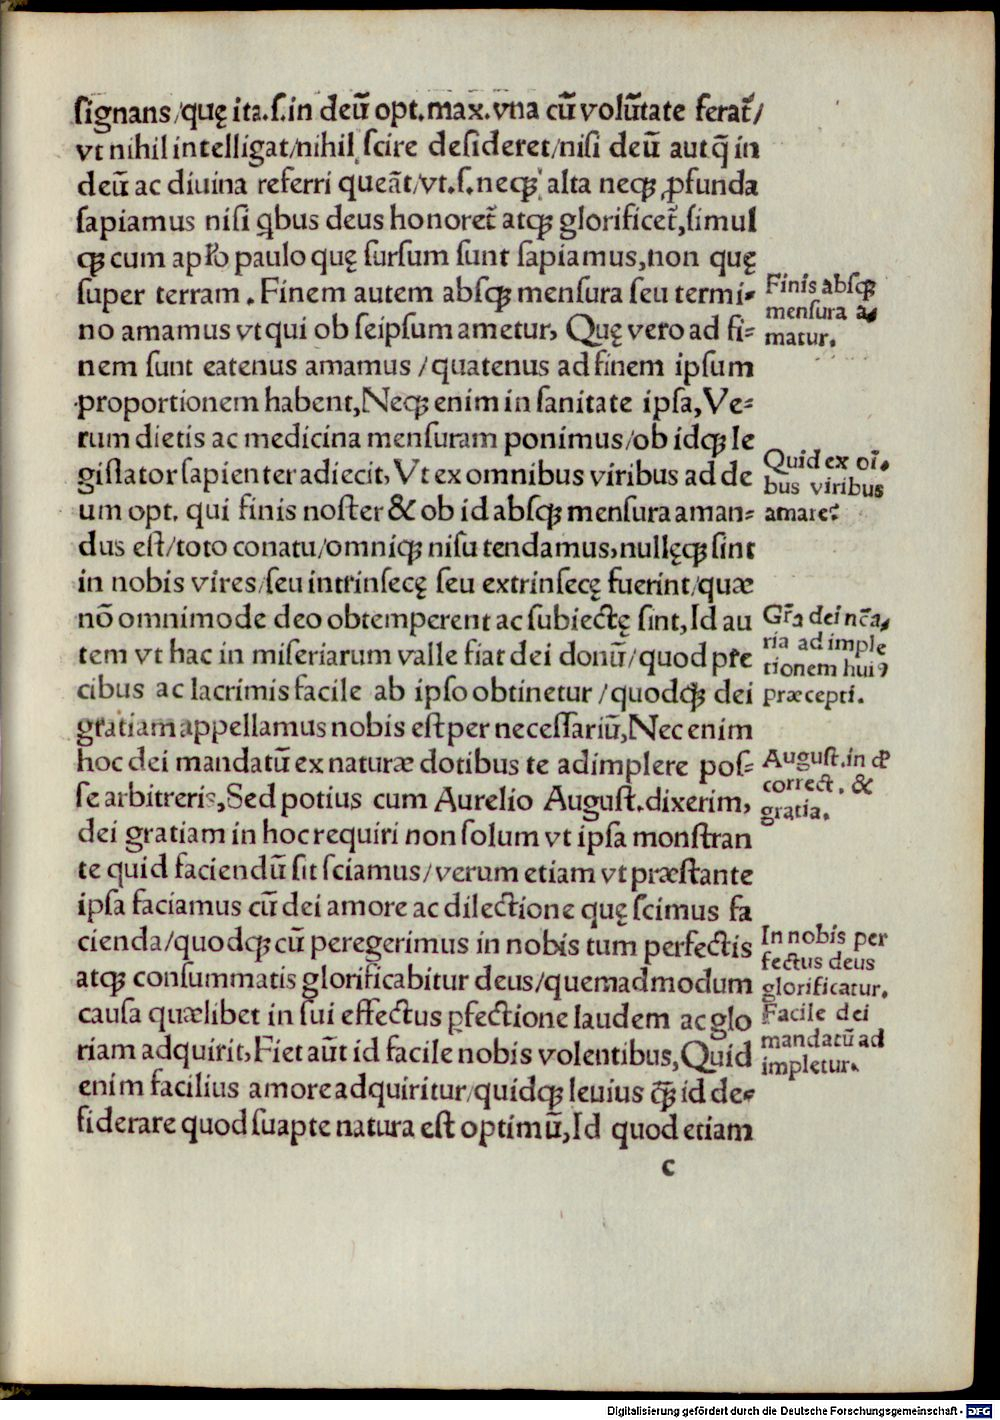 ſignans/quę ita.ſ.in deū opt.max.vna cū volūtate ferat᷑/
vt nihil intelligat/nihil ſcire deſideret/niſi deū aut q̄ in
deū ac diuina referri queāt/vt.ſ.neqꝫ alta neqꝫ ꝓfunda
ſapiamus niſi qbus deus honoret᷑ atqꝫ glorificet᷑,ſimul
qꝫ cum apło paulo quę ſurſum ſunt ſapiamus,non quę
ſuper terram. Finem autem abſqꝫ menſura ſeu termi-
no amamus vt qui ob ſeipſum ametur, Quę vero ad fi-
nem ſunt eatenus amamus /quatenus ad finem ipſum
proportionem habent,Neqꝫ enim in ſanitate ipſa,Ve-
rum dietis ac medicina menſuram ponimus/ob idqꝫ le
giſlator ſapienter adiecit, Vt ex omnibus viribus ad de
um opt. qui finis noſter & ob id abſqꝫ menſura aman-
dus eſt/toto conatu/omniqꝫ niſu tendamus,nullęqꝫ ſint
in nobis vires/ſeu intrinſecę ſeu extrinſecę fuerint/quæ
nō omnimode deo obtemperent ac ſubiectę ſint,Id au
tem vt hac in miſeriarum valle fiat dei donū/quod p̄re
cibus ac lacrimis facile ab ipſo obtinetur /quodqꝫ dei
gratiam appellamus nobis eſt per neceſſariū,Nec enim
hoc dei mandatū ex naturæ dotibus te adimplere poſ-
ſe arbitreris,Sed potius cum Aurelio Auguſt.dixerim,
dei gratiam in hoc requiri non ſolum vt ipſa monſtran
te quid faciendū ſit ſciamus/verum etiam vt præſtante
ipſa faciamus cū dei amore ac dilectione quę ſcimus fa
cienda/quodqꝫ cū peregerimus in nobis tum perfectis
atqꝫ conſummatis glorificabitur deus/quemadmodum
cauſa quælibet in ſui effectus ꝑfectione laudem ac glo
riam adquirit,Fiet aūt id facile nobis volentibus,Quid
enim facilius amore adquiritur/quidqꝫ leuius q̄ꝫ id de-
ſiderare quod ſuapte natura eſt optimū,Id quod etiam
c
Finis abſqꝫ
menſura a-
matur.
Quid ex oī-
bus viribus
amaret᷑
Gr̄a dei nc̄a-
ria ad imple
tionem huiꝰ
præcepti.
Auguſt.in d̄
correct. &
gratia.
In nobis per
fectus deus
glorificatur.
Facile dei
mandatū ad
impletur.
Digitalisierung gefördert durch die Deutsche Forschungsgemeinschaft - DFG